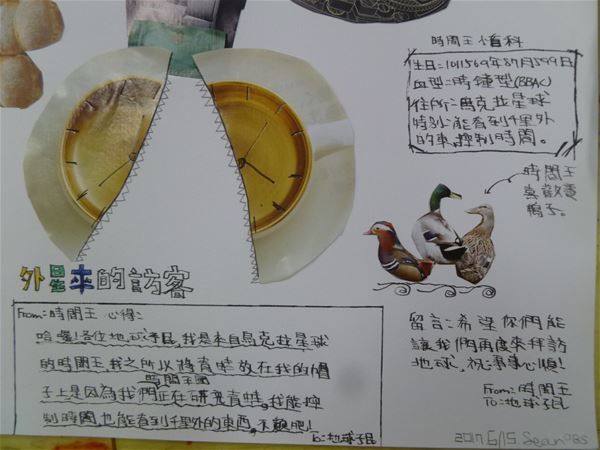 時間王小百科
生日:101569年87月599日
血型:時鐘型(BBAC)
住所:烏克拉星球
特別:能看到千里外
的車,控制時間。
時間王
喜歡養
鴨子。
外星來的訪客
From:時間王 心得:
哈囉!各位地球子民,我是來自烏克拉星球
的時間王,我之所以將青蛙放在我的帽
子上是因為我們時間王國正在研究青蛙。我能控
制時間,也能看到千里外的東西,不賴吧!
To:地球子民
留言:希望你們能
讓我們再度來拜訪
地球,祝:事事心順!
From:時間王
To:地球子民
2017.6/15. Sean985